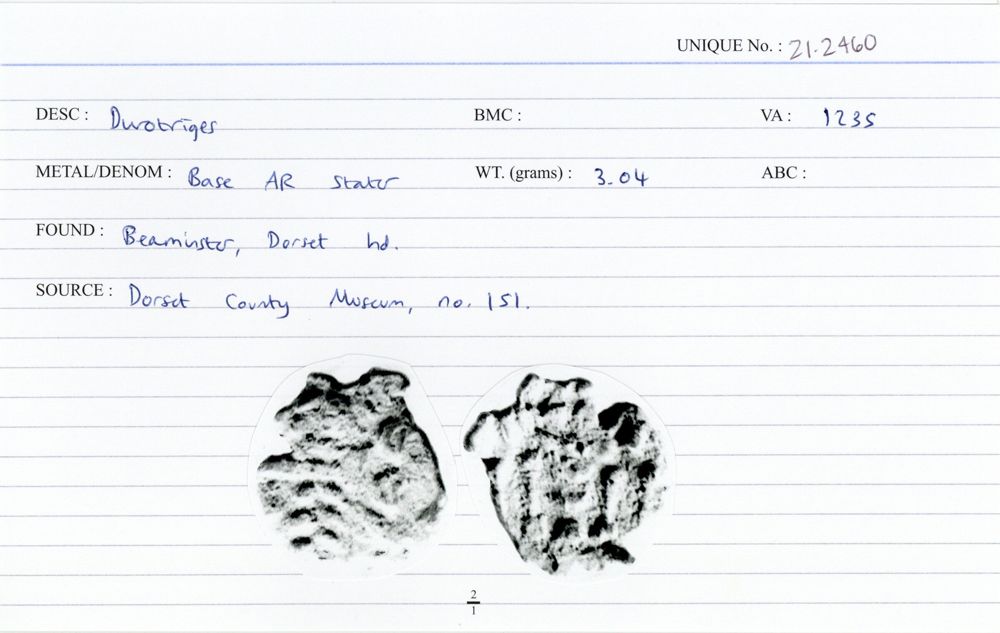 UNIQUE No. : 21.2460
DESC : Durotriges BMC : VA : 1235
METAL/DENOM : Base AR Stater WT. (grams) : 3.04 ABC :
FOUND : Beaminster, Dorset hd.
SOURCE : Dorset County Museum, no. 151.
2
1